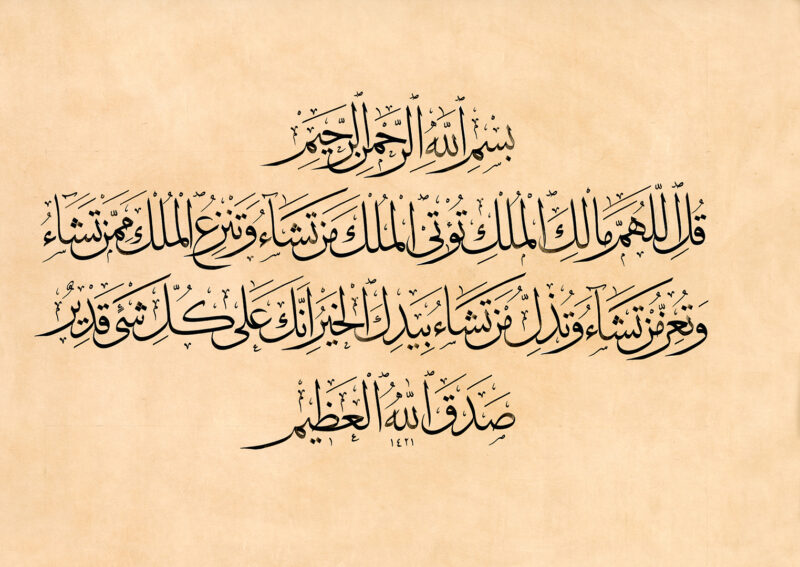 بِسْمِ اللَّهِ الرَّحْمٰنِ الرَّحِيمِ
قُلِ اللَّهُمَّ مَالِكَ الْمُلْكِ تُؤْتِي الْمُلْكَ مَنْ تَشَاءُ وَتَنْزِعُ الْمُلْكَ مِمَّنْ تَشَاءُ
وَتُعِزُّ مَنْ تَشَاءُ وَتُذِلُّ مَنْ تَشَاءُ بِيَدِكَ الْخَيْرُ اِنَّكَ عَلٰى كُلِّ شَىْءٍ قَدِيرٌ
صَدَقَ اللَّهُ الْعَظِيمُ
١٤٢١